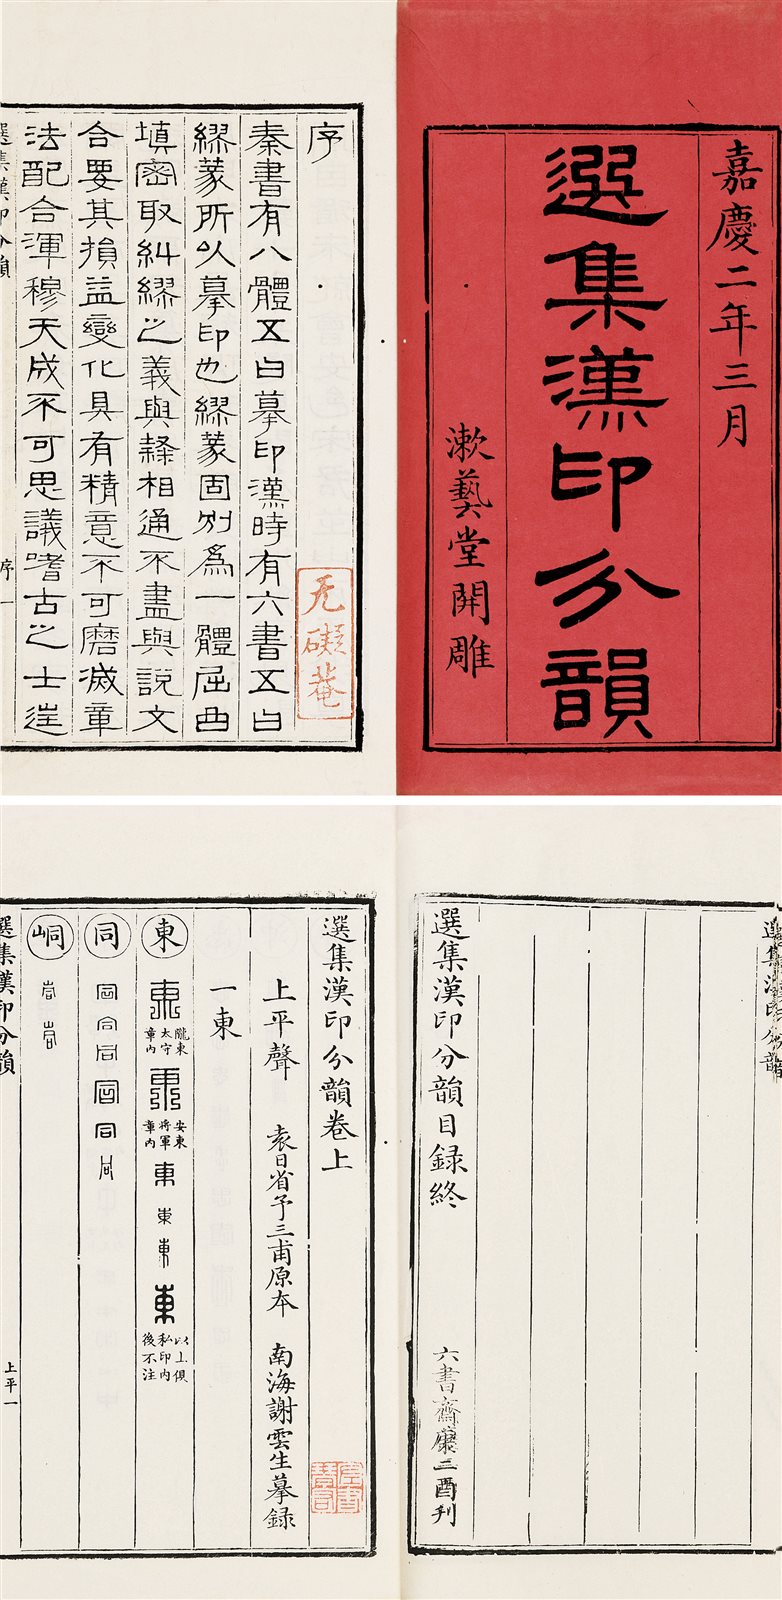 嘉慶二年三月
選集漢印分韻
漱藝堂開雕
序
秦書有八體五曰摹印漢時有六書五曰
繆篆所以摹印也繆篆固別爲一體屈曲
填密取糾繆之義與隸相通不盡與說文
合要其損益變化具有精意不可磨滅章
法配合渾穆天成不可思議嗜古之士逞
无礙菴
選集漢印分韻
序 一
選集漢印分韻
選集漢印分韻目録終
六書齋 三酉刊
選集漢印分韻卷上
上平聲 袁日省予三甫原本 南海謝雲生摹録
一東
東 東 隴東太守章內 東 安東將軍章內 東 東 東 東 以上俱私印內後不注
同 同 同 同 同 同 同
峒 峒 峒
選集漢印分韻
上平一